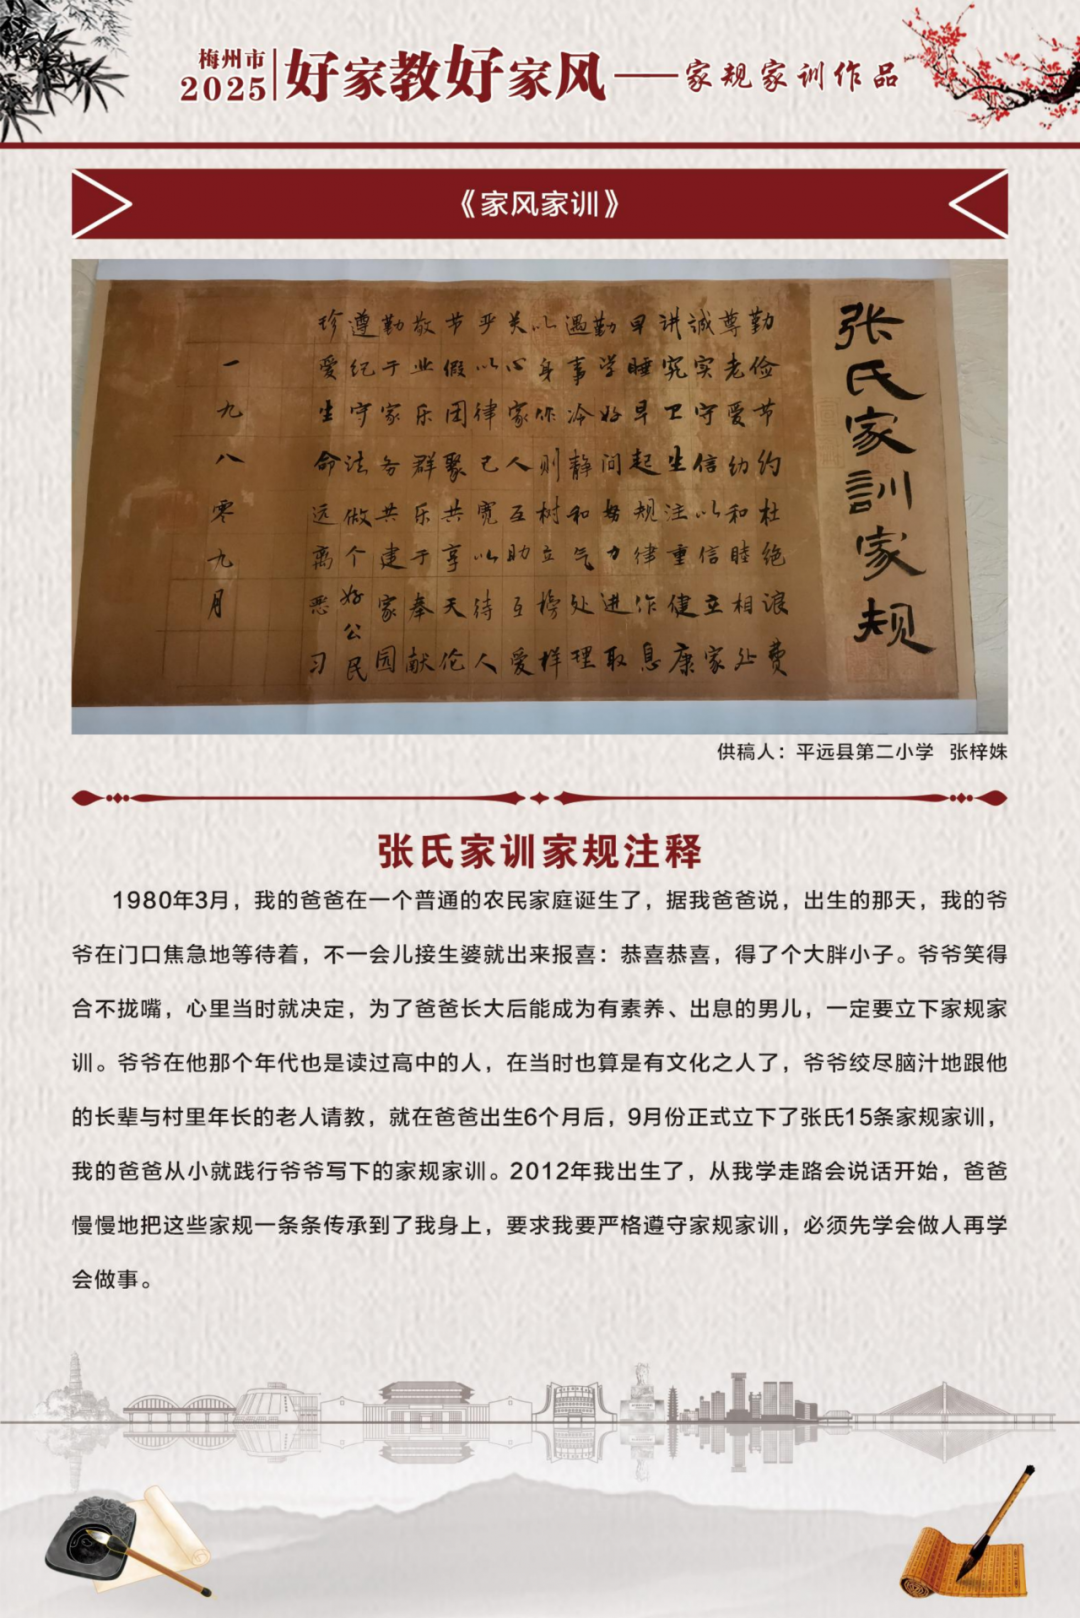 梅州市
2025
好家教好家风——家规家训作品
《家风家训》
张氏家訓家规
勤俭节约杜绝浪费
尊老爱幼和睦相处
诚实守信以信立家
讲究卫生注重健康
早睡早起规律作息
勤学好问努力进取
遇事冷静和气处理
以身作则树立榜样
关心家人互助互爱
严以律己宽以待人
节假团聚共享天伦
敬业乐群乐于奉献
勤于家务共建家园
遵纪守法做个好公民
珍爱生命远离恶习
一九八零九月
供稿人：平远县第二小学 张梓姝
张氏家训家规注释
1980年3月，我的爸爸在一个普通的农民家庭诞生了，据我爸爸说，出生的那天，我的爷
爷在门口焦急地等待着，不一会儿接生婆就出来报喜：恭喜恭喜，得了个大胖小子。爷爷笑得
合不拢嘴，心里当时就决定，为了爸爸长大后能成为有素养、出息的男儿，一定要立下家规家
训。爷爷在他那个年代也是读过高中的人，在当时也算是有文化之人了，爷爷绞尽脑汁地跟他
的长辈与村里年长的老人请教，就在爸爸出生6个月后，9月份正式立下了张氏15条家规家训，
我的爸爸从小就践行爷爷写下的家规家训。2012年我出生了，从我学走路会说话开始，爸爸
慢慢地把这些家规一条条传承到了我身上，要求我要严格遵守家规家训，必须先学会做人再学
会做事。